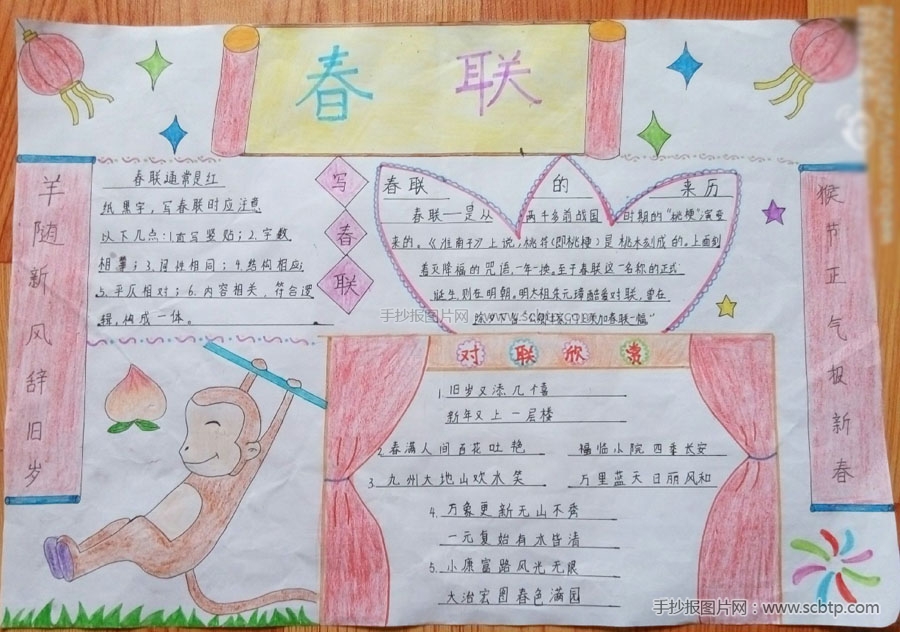 春 联
羊随新风辞旧岁
春联通常是红
纸黑字，写春联时应注意
以下几点：1.直写竖贴；2.字数
相等；3.词性相同；4.结构相应；
5.平仄相对；6.内容相关，符合逻
辑，构成一体。
写春联
春联的来历
春联一是从两千多前战国时期的“桃梗”演变
来的。《淮南子》上说，桃符（即桃梗）是桃木刻成的。上面刻
着灭降福的咒语，一年一换。至于春联这一名称的正式
诞生，则在明朝。明太祖朱元璋酷爱对联，曾在
加春联一幅”
猴节正气报新春
对联欣赏
1.旧岁又添几个喜
新年又上一层楼
2.春满人间百花吐艳 福临小院四季长安
3.九州大地山欢水笑 万里蓝天日丽风和
4.万象更新无山不秀
一元复始有水皆清
5.小康富路风光无限
大治宏图春色满园
手抄报图片网：www.scbtp.com
手抄报图片网：www.scbtp.com